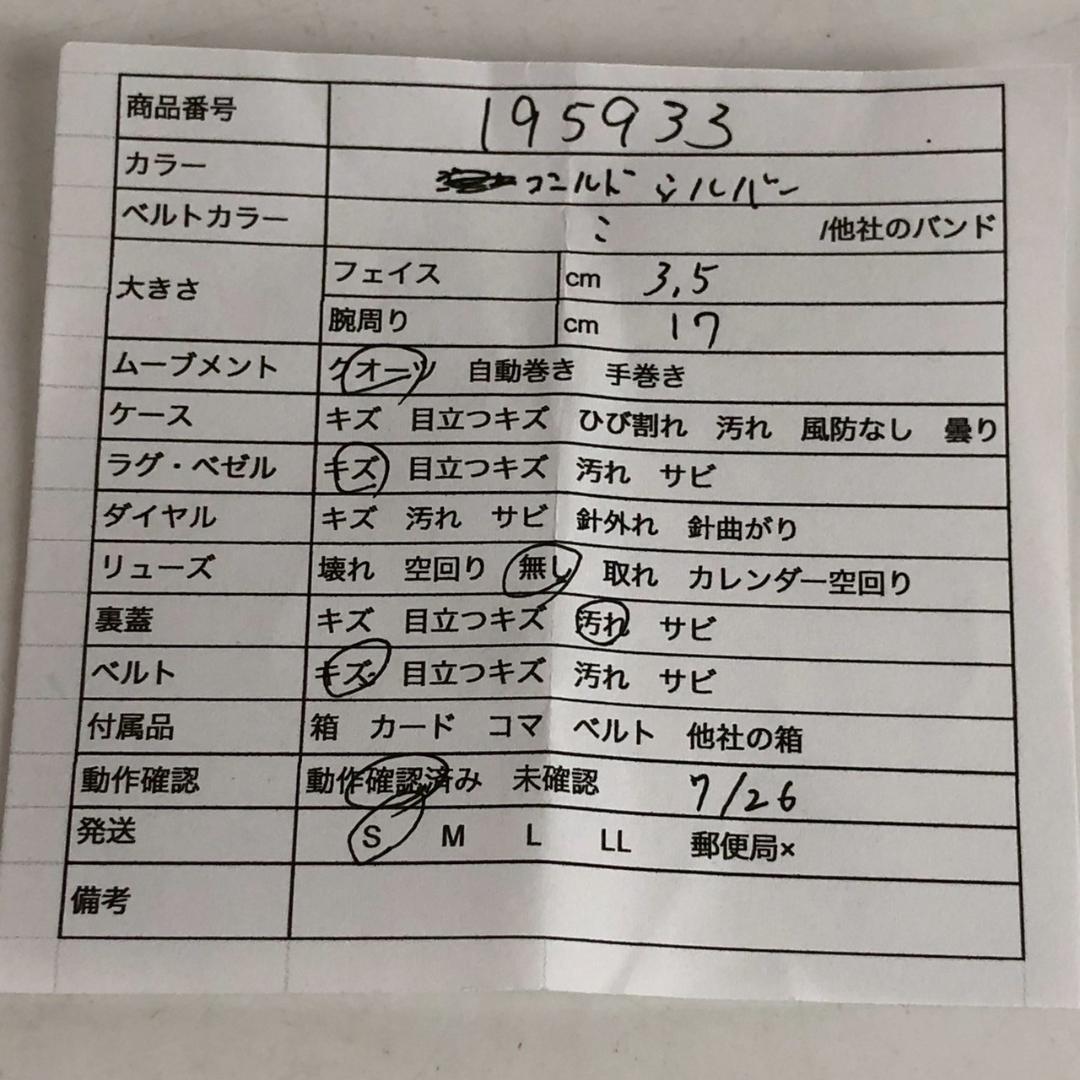 商品番号 195933
カラー ゴールド シルバー
ベルトカラー 〃 /他社のバンド
大きさ フェイス cm 3.5
腕周り cm 17
ムーブメント クオーツ 自動巻き 手巻き
ケース キズ 目立つキズ ひび割れ 汚れ 風防なし 曇り
ラグ・ベゼル キズ 目立つキズ 汚れ サビ
ダイヤル キズ 汚れ サビ 針外れ 針曲がり
リューズ 壊れ 空回り 無し 取れ カレンダー空回り
裏蓋 キズ 目立つキズ 汚れ サビ
ベルト キズ 目立つキズ 汚れ サビ
付属品 箱 カード コマ ベルト 他社の箱
動作確認 動作確認済み 未確認 7/26
発送 S M L LL 郵便局×
備考